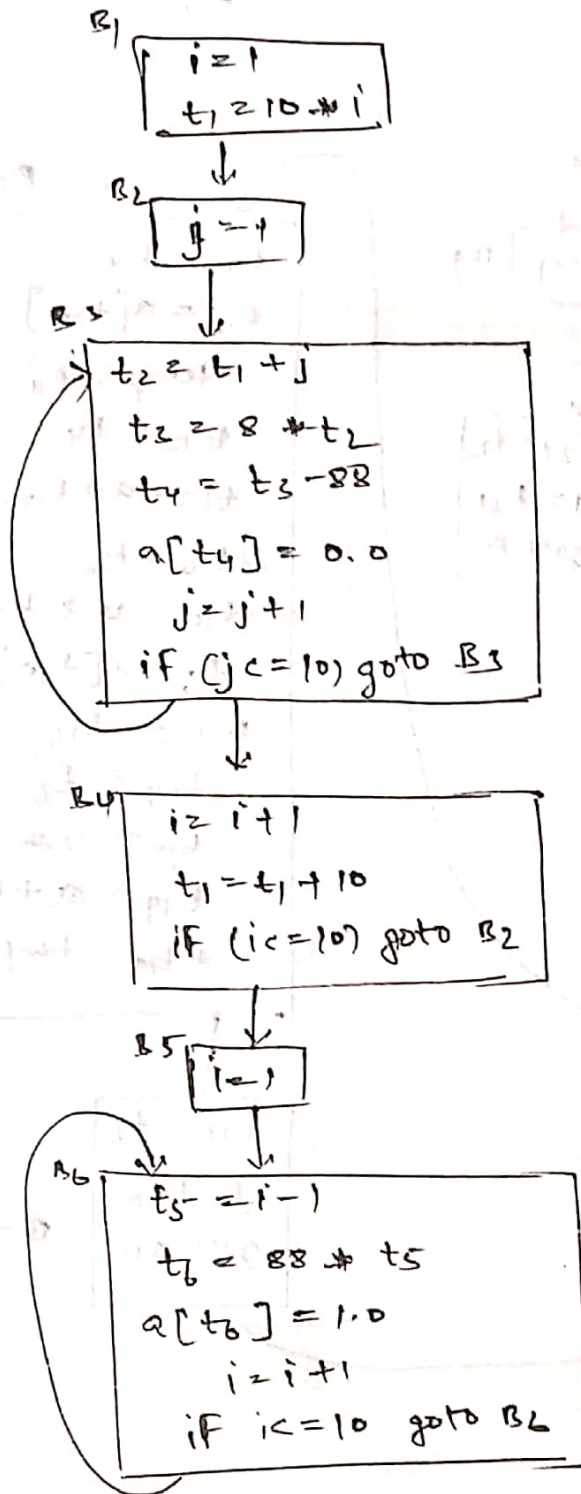 B1
i = 1
t1 = 10 * i
B2
j = 1
B3
t2 = t1 + j
t3 = 8 * t2
t4 = t3 - 88
a[t4] = 0.0
j = j + 1
if (j <= 10) goto B3
B4
i = i + 1
t1 = t1 + 10
if (i <= 10) goto B2
B5
i = 1
B6
t5 = i - 1
t6 = 88 * t5
a[t6] = 1.0
i = i + 1
if i <= 10 goto B6